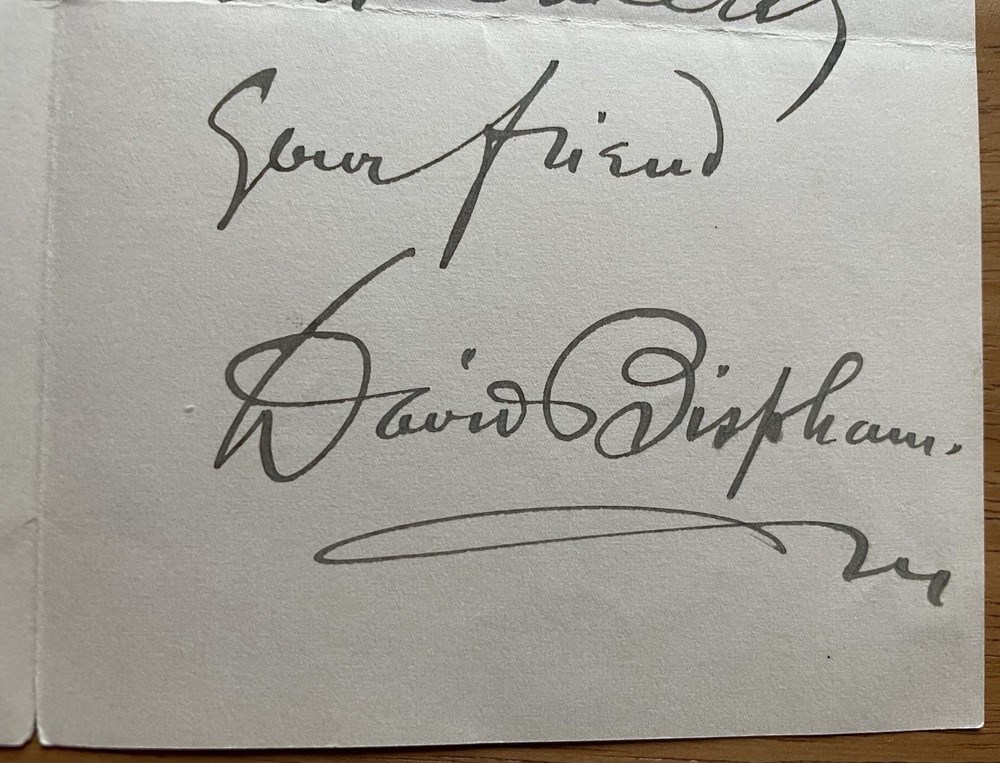 Your friend
David Bispham.